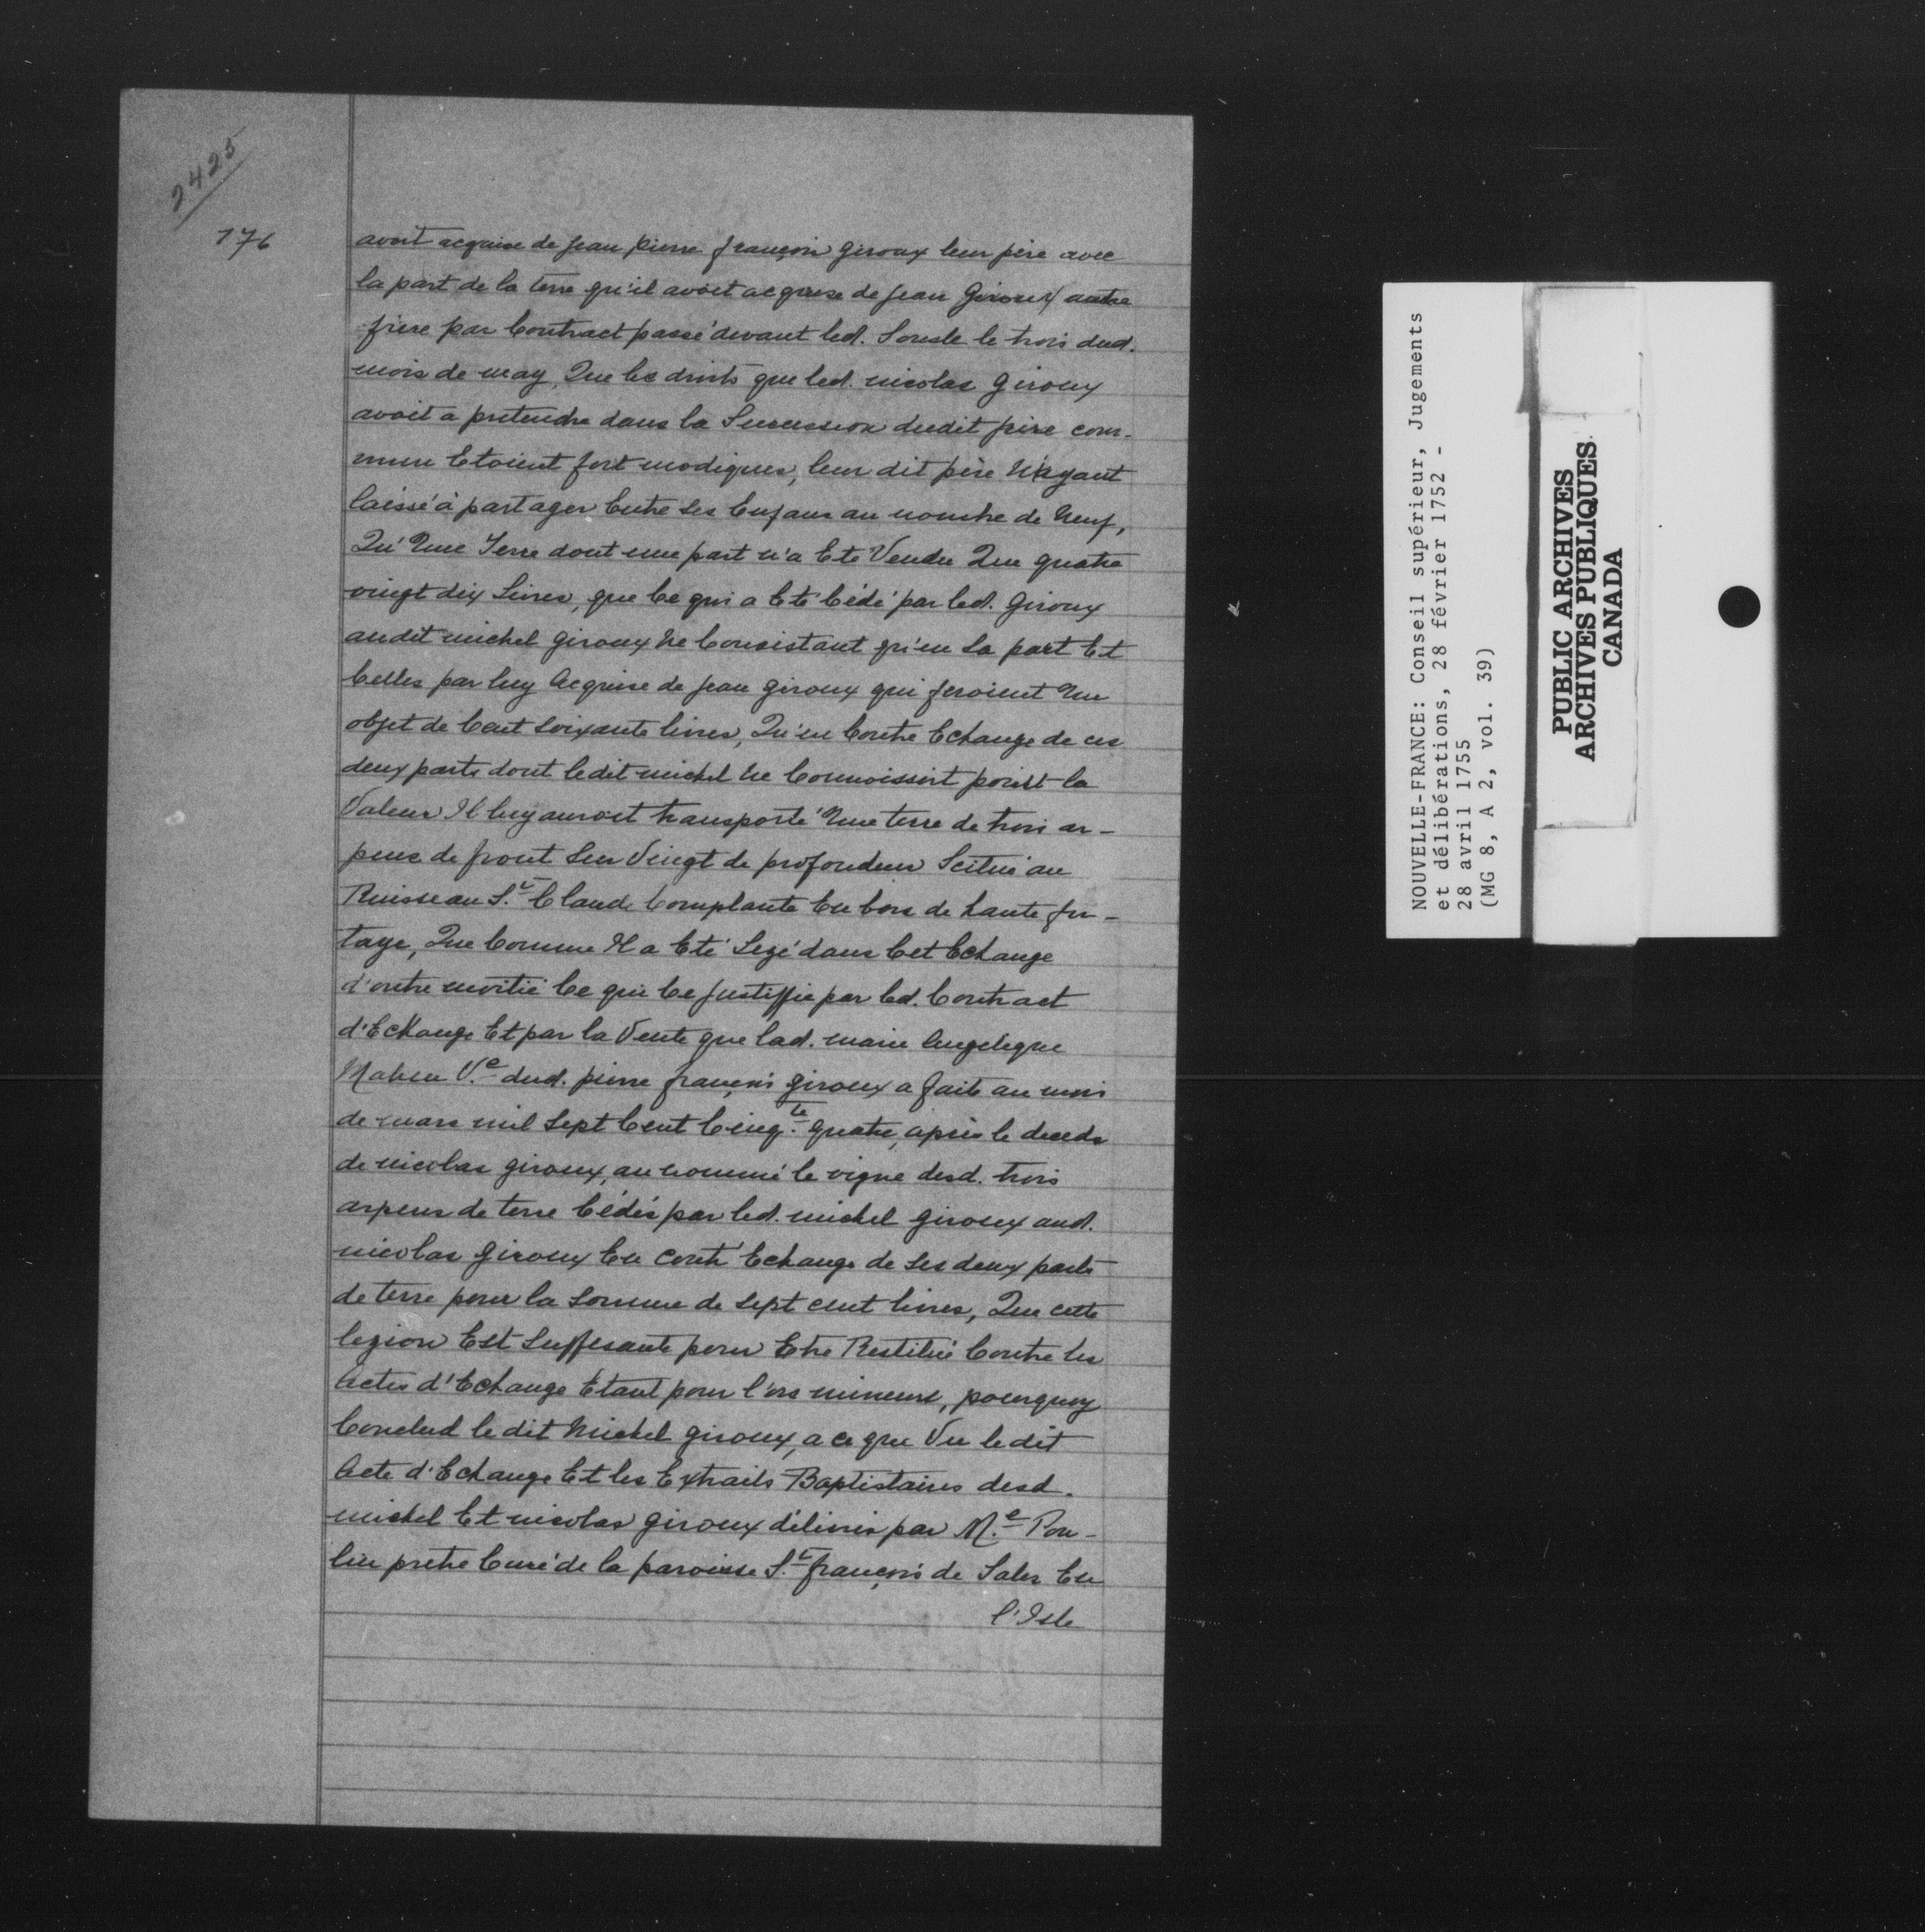 2425
176
avoit acquise de Jean pierre françois giroux leur père avec
la part de la terre qu'il avoit acquise de Jean Giroux autre
frère par Contract passé devant led. Souste le trois dud.
mois de may, Que les droits que led. nicolas Giroux
avoit a pretendre dans la Succession dudit père com-
mun Etoient fort modiques, leur dit père N'ayant
laissé à partager Entre ses Enfans au nombre de Neuf,
Qu'Une Terre dont une part n'a Eté Vendu Que quatre
vingt dix Livres, que Ce qui a Eté Cédé par led. Giroux
audit michel giroux Ne Consistant qu'en La part Et
Celles par luy Acquise de Jean giroux qui feroient Un
objet de Cent Soixante livres, Qu'en Contre Echange de ces
deux parts dont ledit michel Ne Connoissoit point la
Valeur Il luy auroit transporté Une terre de trois ar-
pens de front Sur Vingt de profondeur Scitué au
Ruisseau S.t Claude Complanté En bois de haute fu-
taye, Que Comme Il a Eté Lezé dans Cet Echange
d'outre moitié Ce qui Ce Justiffie par led. Contract
d'Echange Et par la Vente que lad. marie Angelique
Maheu V.e dud. pierre françois giroux a fait au mois
de mars mil Sept Cent Cinq.te quatre, après le deceds
de nicolas giroux, au nommé le vigne desd. trois
arpens de terre Cédés par led. michel giroux aud.
nicolas Giroux En contr'Echange de Ses deux parts
de terre pour la Somme de Sept cent livres, Que cette
lezion Est Suffisante pour Etre Restitué Contre les
Actes d'Echange Etant pour l'ors mineurs, pourquoy
Conclud le dit Michel giroux, a ce que Vu le dit
Acte d'Echange Et les Extraits Baptistaires desd.
michel Et nicolas giroux délivrés par M.e Pou-
lin pretre Curé de la paroisse S.t françois de Sales En
l'Isle
NOUVELLE-FRANCE: Conseil supérieur, Jugements
et délibérations, 28 février 1752 -
28 avril 1755
(MG 8, A 2, vol. 39)
PUBLIC ARCHIVES
ARCHIVES PUBLIQUES
CANADA